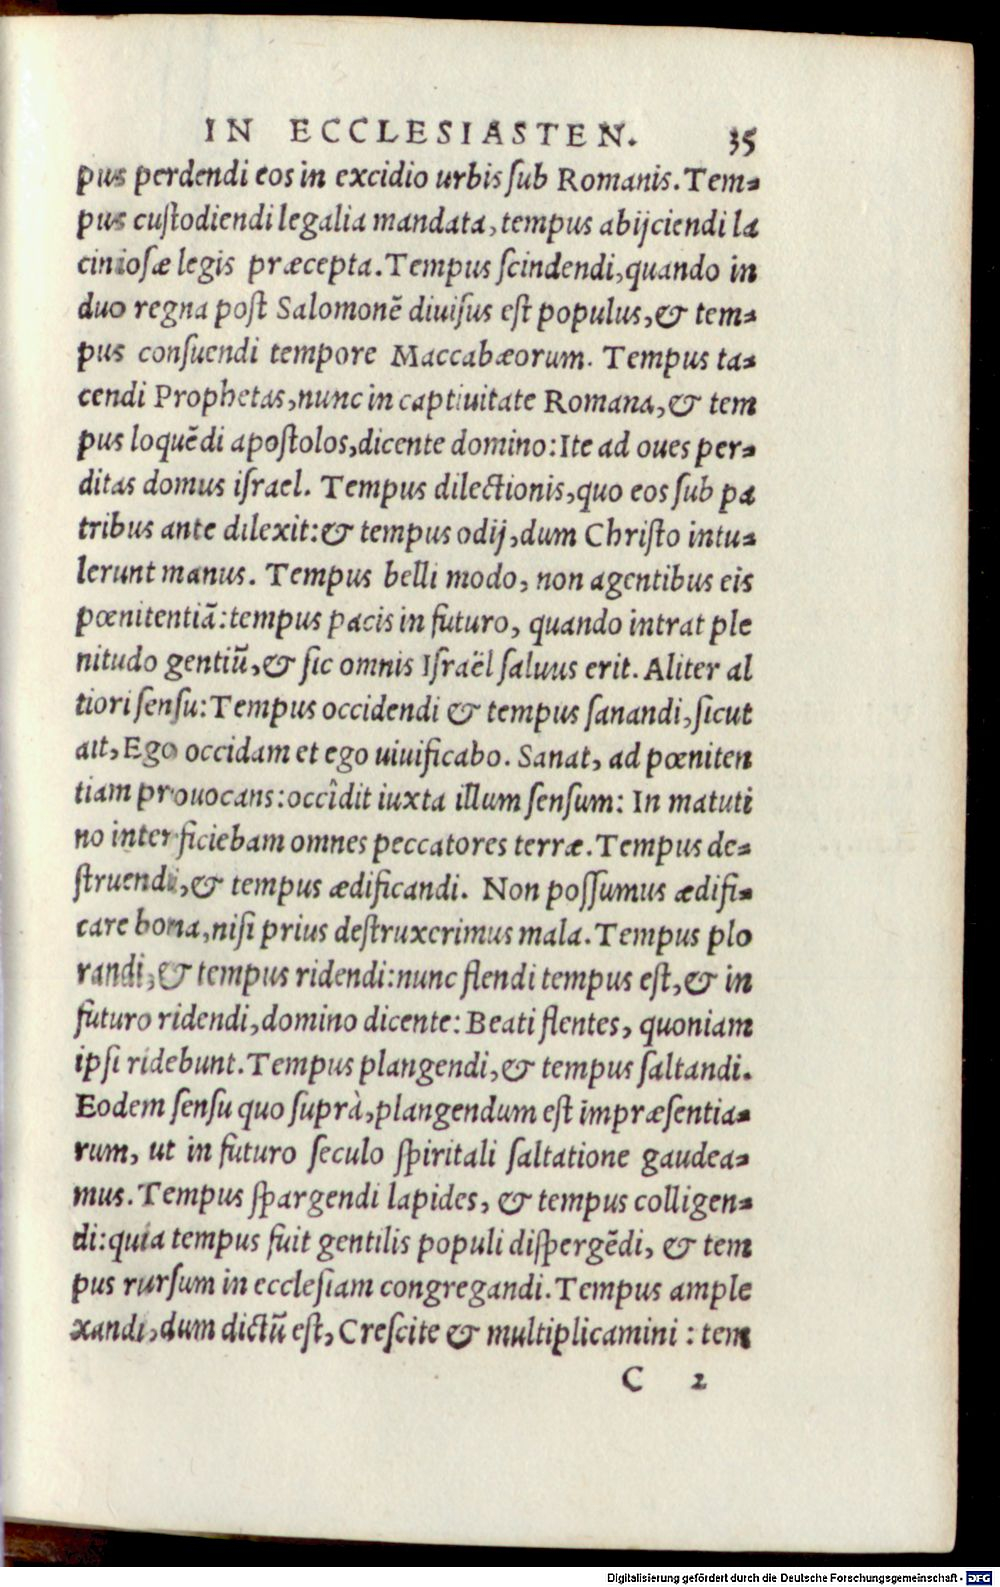 IN ECCLESIASTEN. 35
pus perdendi eos in excidio urbis ſub Romanis. Tem-
pus cuſtodiendi legalia mandata, tempus abijciendi la
cinioſæ legis præcepta. Tempus ſcindendi, quando in
duo regna poſt Salomonẽ diuiſus eſt populus, & tem-
pus conſuendi tempore Maccabæorum. Tempus ta-
cendi Prophetas, nunc in captiuitate Romana, & tem
pus loquẽdi apoſtolos, dicente domino: Ite ad oues per-
ditas domus iſrael. Tempus dilectionis, quo eos ſub pa
tribus ante dilexit: & tempus odij, dum Chriſto intu-
lerunt manus. Tempus belli modo, non agentibus eis
pœnitentiã: tempus pacis in futuro, quando intrat ple
nitudo gentiũ, & ſic omnis Iſraël ſaluus erit. Aliter al
tiori ſenſu: Tempus occidendi & tempus ſanandi, ſicut
ait, Ego occidam et ego uiuificabo. Sanat, ad pœniten
tiam prouocans: occîdit iuxta illum ſenſum: In matuti
no interficiebam omnes peccatores terræ. Tempus de-
ſtruendi, & tempus ædificandi. Non poſſumus ædifi-
care bona, niſi prius deſtruxerimus mala. Tempus plo
randi, & tempus ridendi: nunc flendi tempus eſt, & in
futuro ridendi, domino dicente: Beati flentes, quoniam
ipſi ridebunt. Tempus plangendi, & tempus ſaltandi.
Eodem ſenſu quo ſuprà, plangendum eſt impræſentia-
rum, ut in futuro ſeculo ſpiritali ſaltatione gaudea-
mus. Tempus ſpargendi lapides, & tempus colligen-
di: quia tempus fuit gentilis populi diſpergẽdi, & tem
pus rurſum in eccleſiam congregandi. Tempus ample
xandi, dum dictũ eſt, Creſcite & multiplicamini : tem
C 2
Digitalisierung gefördert durch die Deutsche Forschungsgemeinschaft - DFG